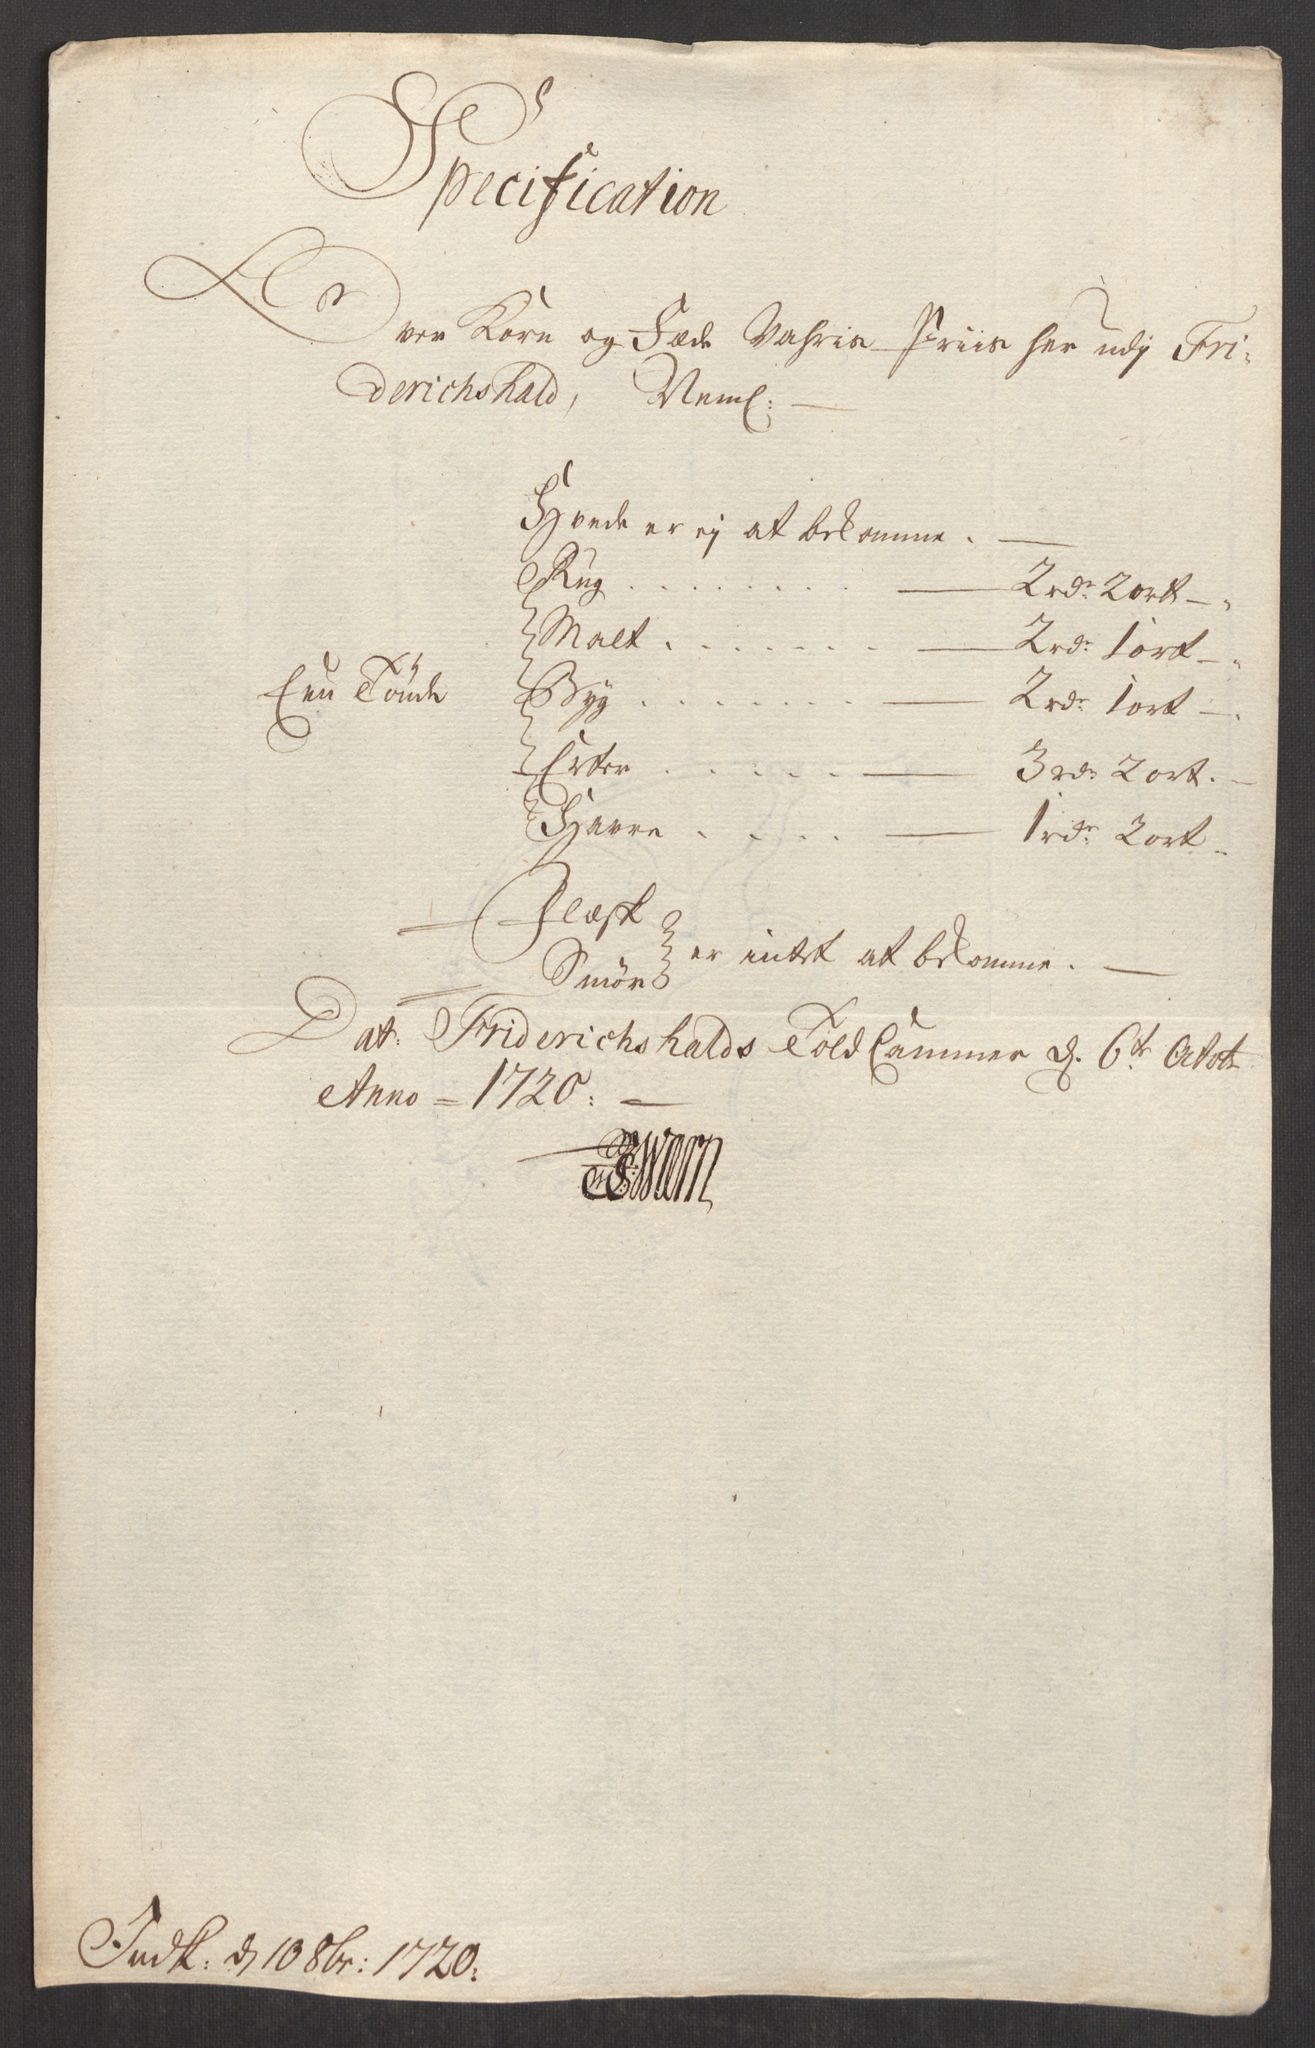 Specification
Over Korn og Fæde Vahris Priis her udj Fri-
derichshald, Neml:
Hvede er ej at bekomme.
Rug . . . . . . . . 2 rdr 2 ort
Malt . . . . . . . 2 rdr 1 ort
Een Tønde Byg . . . . . . . 2 rdr 1 ort
Erter . . . . . 3 rdr 2 ort.
Havre . . . . 1 rdr 2 ort
Flæsk
Smør er intet at bekomme.
Dat: Friderichshalds Told Cammer d. 6te Octobr
Anno = 1720.
Indk: d 10 8br: 1720.